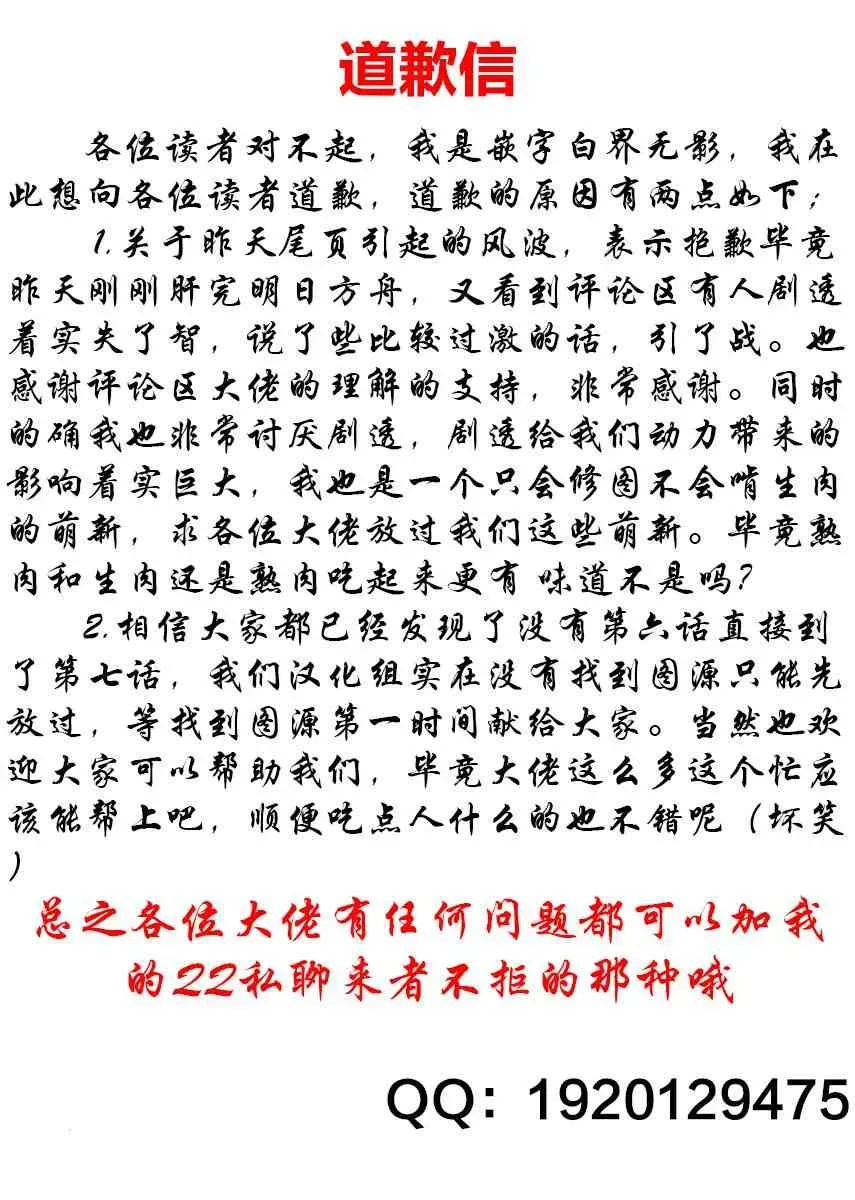 道歉信
各位读者对不起，我是嵌字白界无影，我在
此想向各位读者道歉，道歉的原因有两点如下；
1.关于昨天尾页引起的风波，表示抱歉毕竟
昨天刚刚肝完明日方舟，又看到评论区有人剧透
着实失了智，说了些比较过激的话，引了战。也
感谢评论区大佬的理解的支持，非常感谢。同时
的确我也非常讨厌剧透，剧透给我们动力带来的
影响着实巨大，我也是一个只会修图不会啃生肉
的萌新，求各位大佬放过我们这些萌新。毕竟熟
肉和生肉还是熟肉吃起来更有 味道不是吗？
2.相信大家都已经发现了没有第六话直接到
了第七话，我们汉化组实在没有找到图源只能先
放过，等找到图源第一时间献给大家。当然也欢
迎大家可以帮助我们，毕竟大佬这么多这个忙应
该能帮上吧，顺便吃点人什么的也不错呢（坏笑
）
总之各位大佬有任何问题都可以加我
的QQ私聊来者不拒的那种哦
QQ：1920129475